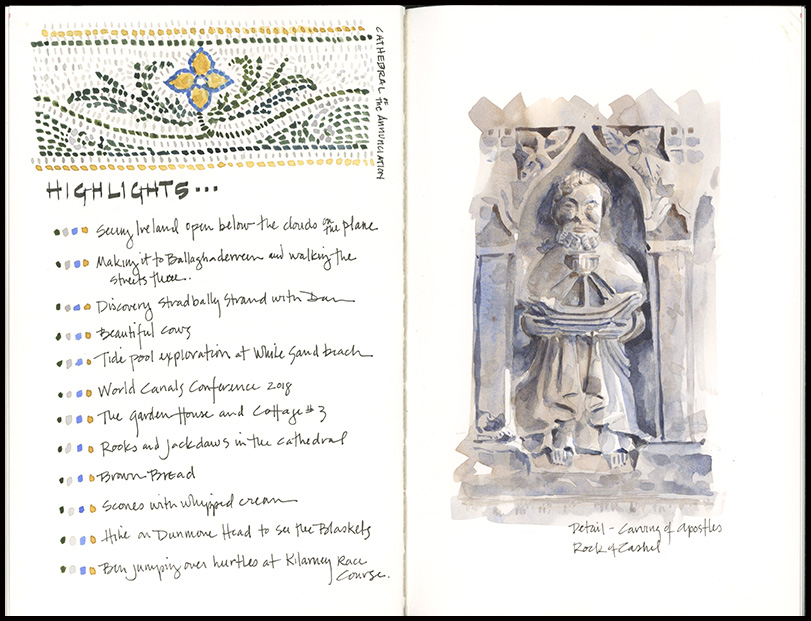 CATHEDRAL OF THE ANNUNCIATION
HIGHLIGHTS...
Seeing Ireland open below the clouds on the plane
Making it to Ballaghaderreen and walking the
streets there..
Discovery Stradbally Strand with Dan
Beautiful cows
Tide pool exploration at White Sand beach
World Canals Conference 2018
The Garden House and Cottage #3
Rooks and Jackdaws in the cathedral
Brown Bread
Scones with whipped cream
Hike on Dunmore Head to see the Blaskets
Ben jumping over hurtles at Kilarney Race
Course.
Detail - Carving of Apostles
Rock of Cashel